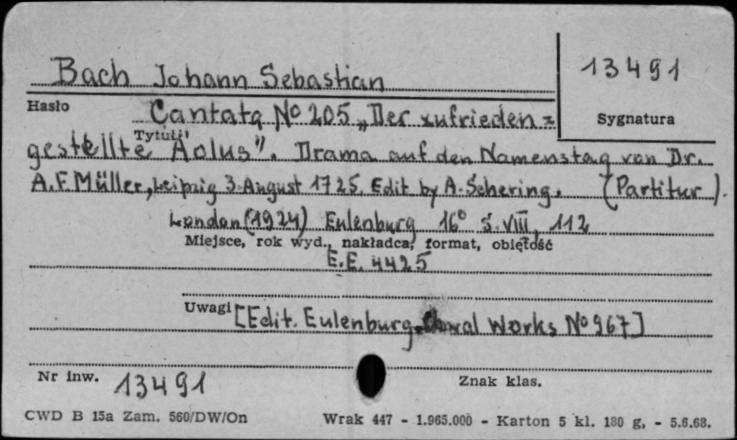 Bach Johann Sebastian
13491
Hasło
Sygnatura
Cantata No 205 „Der zufrieden=
Tytuł
gestellte Äolus". Drama auf den Namenstag von Dr.
A.F. Müller, Leipzig 3. August 1725. Edit by A. Schering. (Partitur).
London (1924) Eulenburg 16° s. VIII, 112
Miejsce, rok wyd., nakładca, format, objętość
E.E. 4425
Uwagi [Edit. Eulenburg. Choral Works No 967]
Nr inw. 13491
Znak klas.
CWD B 15a Zam. 560/DW/On
Wrak 447 - 1.965.000 - Karton 5 kl. 180 g, - 5.6.68.